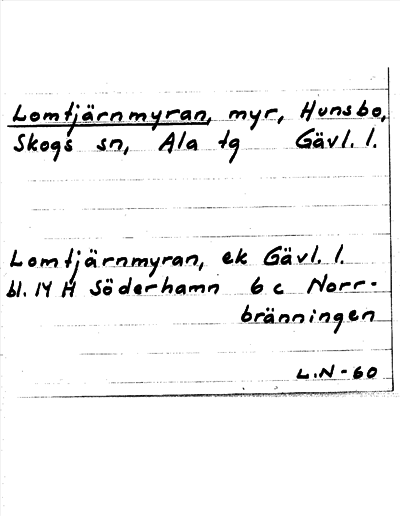 Lomtjärnmyran, myr, Hunsbo,
Skogs sn, Ala tg Gävl. l.
Lomtjärnmyran, ek Gävl. l.
bl. 14 H Söderhamn 6 c Norr-
bränningen
L.N-60